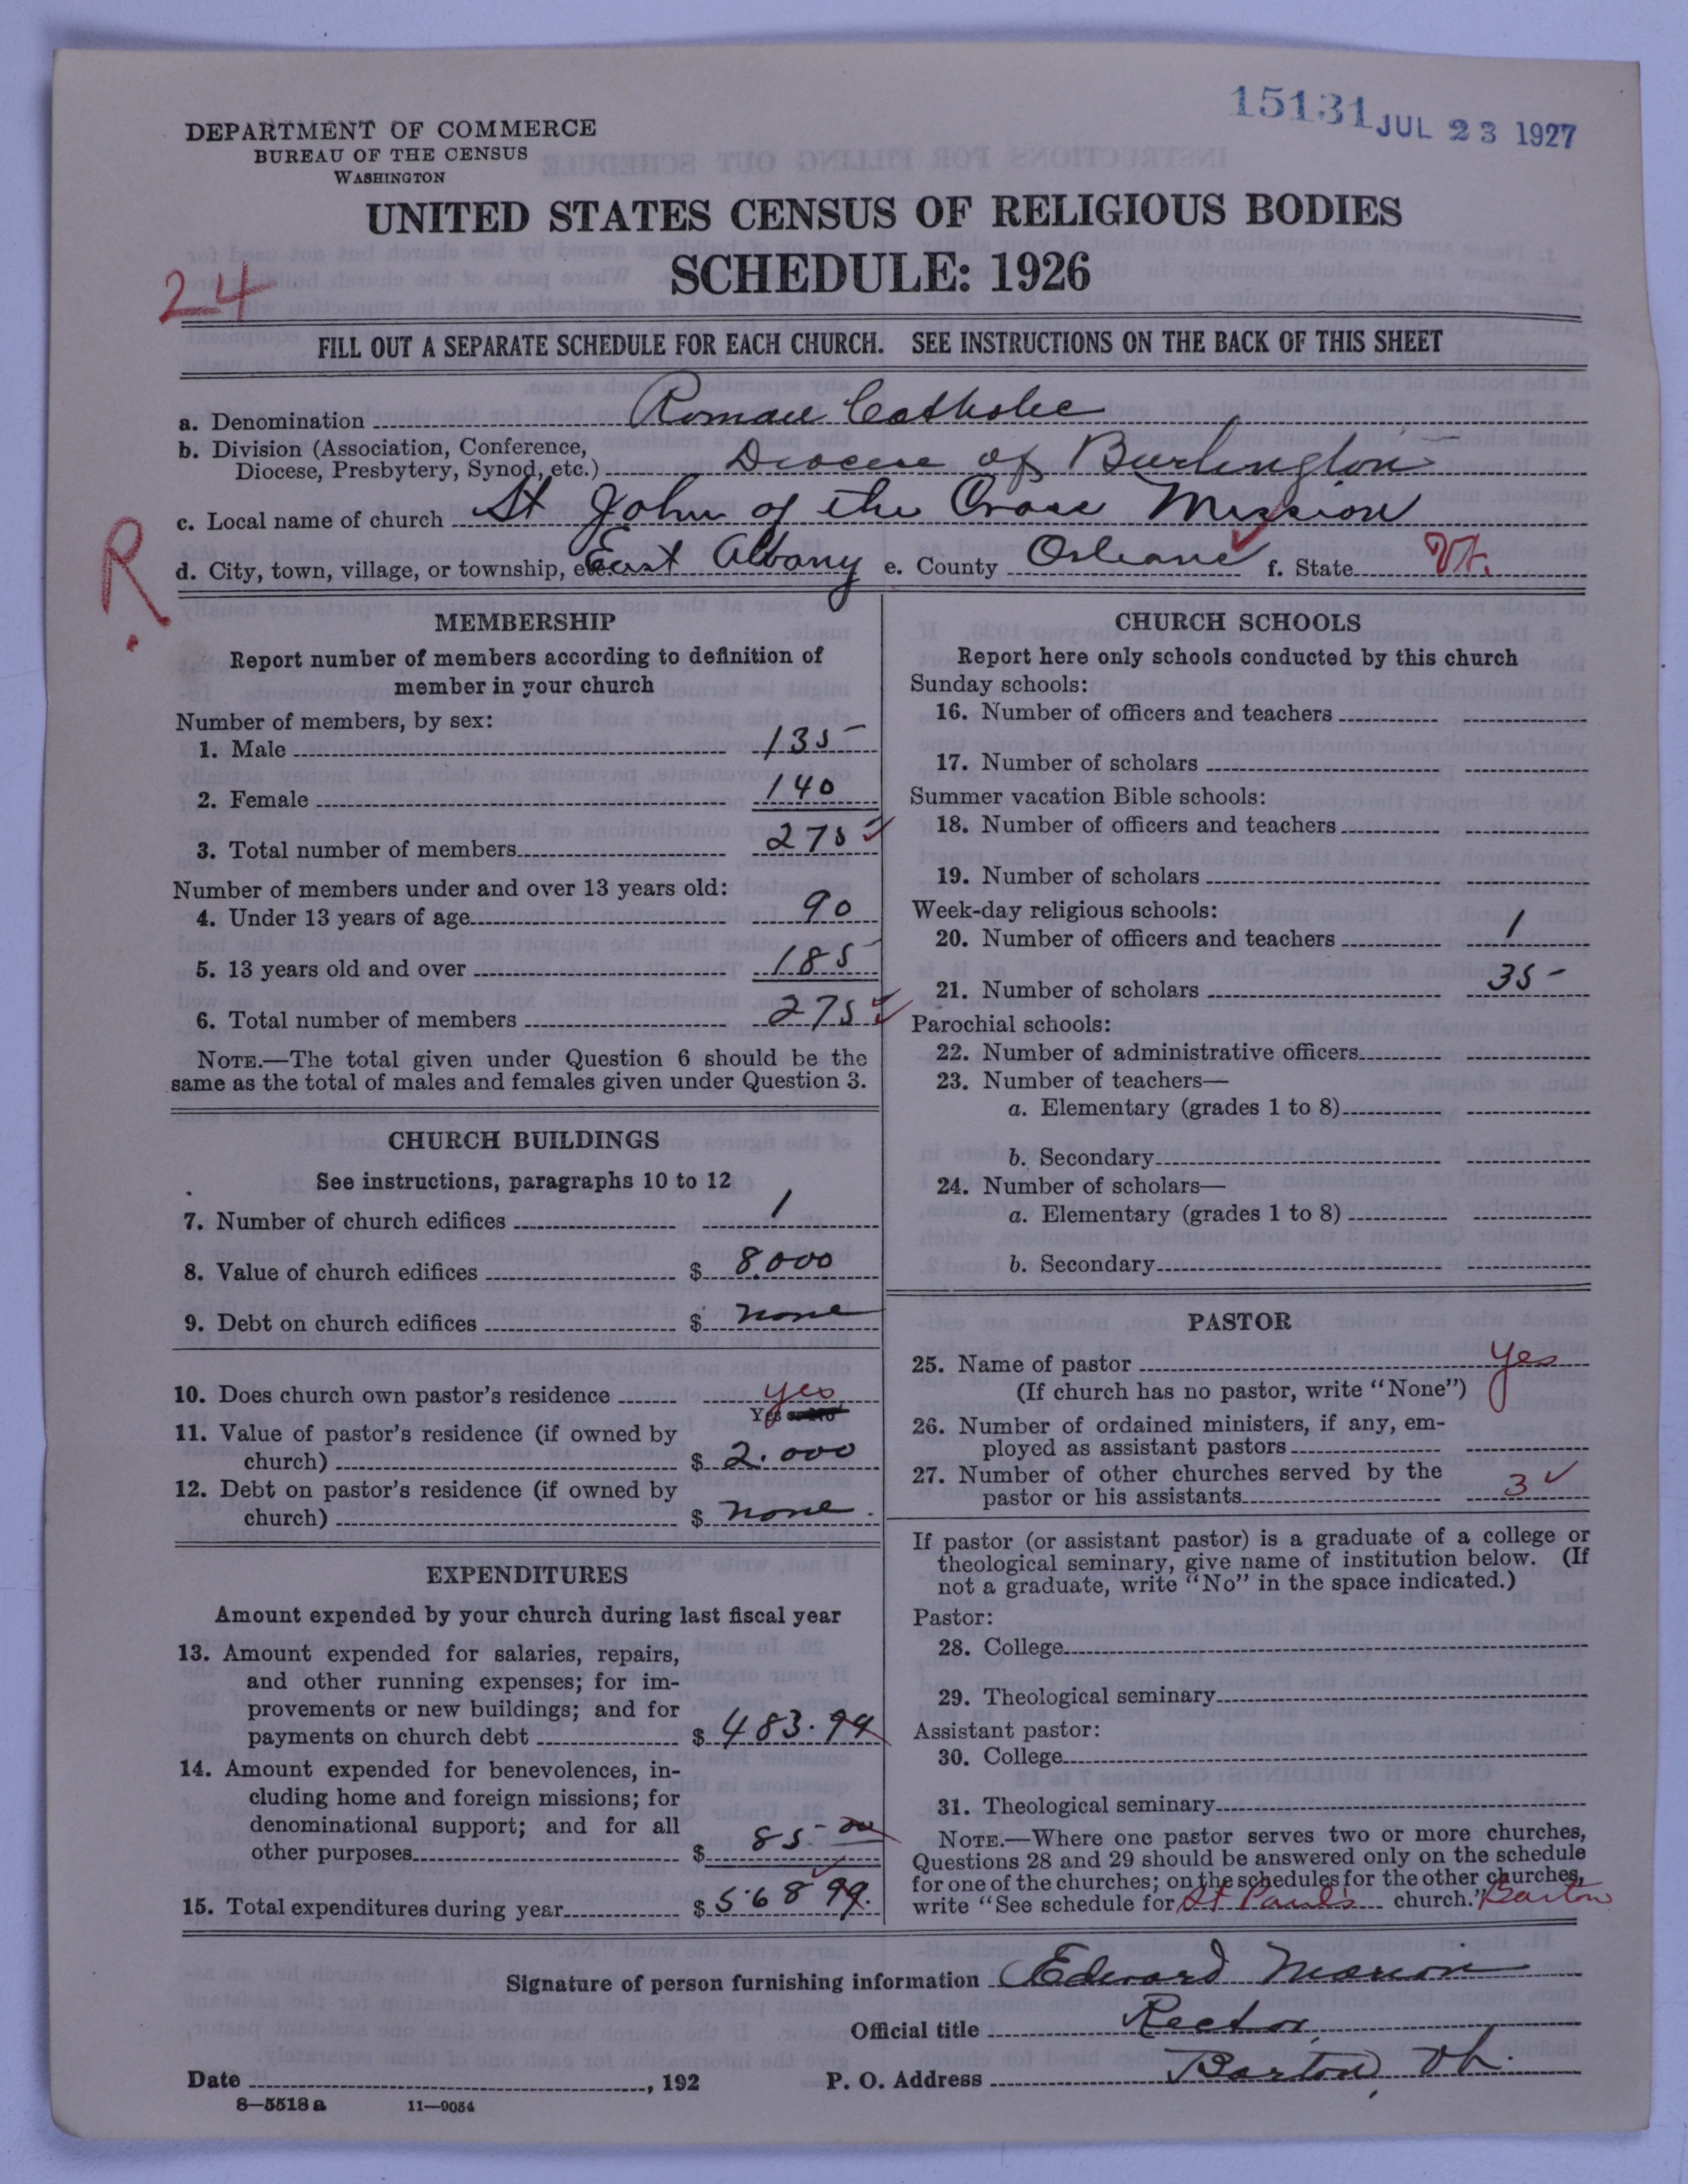 15131 JUL 23 1927
DEPARTMENT OF COMMERCE
BUREAU OF THE CENSUS
WASHINGTON
UNITED STATES CENSUS OF RELIGIOUS BODIES
SCHEDULE: 1926
24
FILL OUT A SEPARATE SCHEDULE FOR EACH CHURCH. SEE INSTRUCTIONS ON THE BACK OF THIS SHEET
a. Denomination Roman Catholic
b. Division (Association, Conference,
Diocese, Presbytery, Synod, etc.) Diocese of Burlington
c. Local name of church St John of the Cross Mission
R.
d. City, town, village, or township, etc. East Albany e. County Orleans f. State Vt.
MEMBERSHIP
Report number of members according to definition of
member in your church
Number of members, by sex:
1. Male 135
2. Female 140
3. Total number of members 275
Number of members under and over 13 years old:
4. Under 13 years of age 90
5. 13 years old and over 185
6. Total number of members 275
NOTE.—The total given under Question 6 should be the
same as the total of males and females given under Question 3.
CHURCH BUILDINGS
See instructions, paragraphs 10 to 12
7. Number of church edifices 1
8. Value of church edifices $ 8.000
9. Debt on church edifices $ none
10. Does church own pastor's residence yes
Yes or No
11. Value of pastor's residence (if owned by
church) $ 2.000
12. Debt on pastor's residence (if owned by
church) $ none
EXPENDITURES
Amount expended by your church during last fiscal year
13. Amount expended for salaries, repairs,
and other running expenses; for im-
provements or new buildings; and for
payments on church debt $ 483.94
14. Amount expended for benevolences, in-
cluding home and foreign missions; for
denominational support; and for all
other purposes $ 85 00
15. Total expenditures during year $ 568
CHURCH SCHOOLS
Report here only schools conducted by this church
Sunday schools:
16. Number of officers and teachers
17. Number of scholars
Summer vacation Bible schools:
18. Number of officers and teachers
19. Number of scholars
Week-day religious schools:
20. Number of officers and teachers 1
21. Number of scholars 35
Parochial schools:
22. Number of administrative officers
23. Number of teachers—
a. Elementary (grades 1 to 8)
b. Secondary
24. Number of scholars—
a. Elementary (grades 1 to 8)
b. Secondary
PASTOR
25. Name of pastor yes
(If church has no pastor, write "None")
26. Number of ordained ministers, if any, em-
ployed as assistant pastors
27. Number of other churches served by the
pastor or his assistants 3
If pastor (or assistant pastor) is a graduate of a college or
theological seminary, give name of institution below. (If
not a graduate, write "No" in the space indicated.)
Pastor:
28. College
29. Theological seminary
Assistant pastor:
30. College
31. Theological seminary
NOTE.—Where one pastor serves two or more churches,
Questions 28 and 29 should be answered only on the schedule
for one of the churches; on the schedules for the other churches,
write "See schedule for St Paul's church." Barton
Signature of person furnishing information Edward Marion
Official title Rector
Date , 192 P. O. Address Barton, Vt.
8—5518 a 11—9054